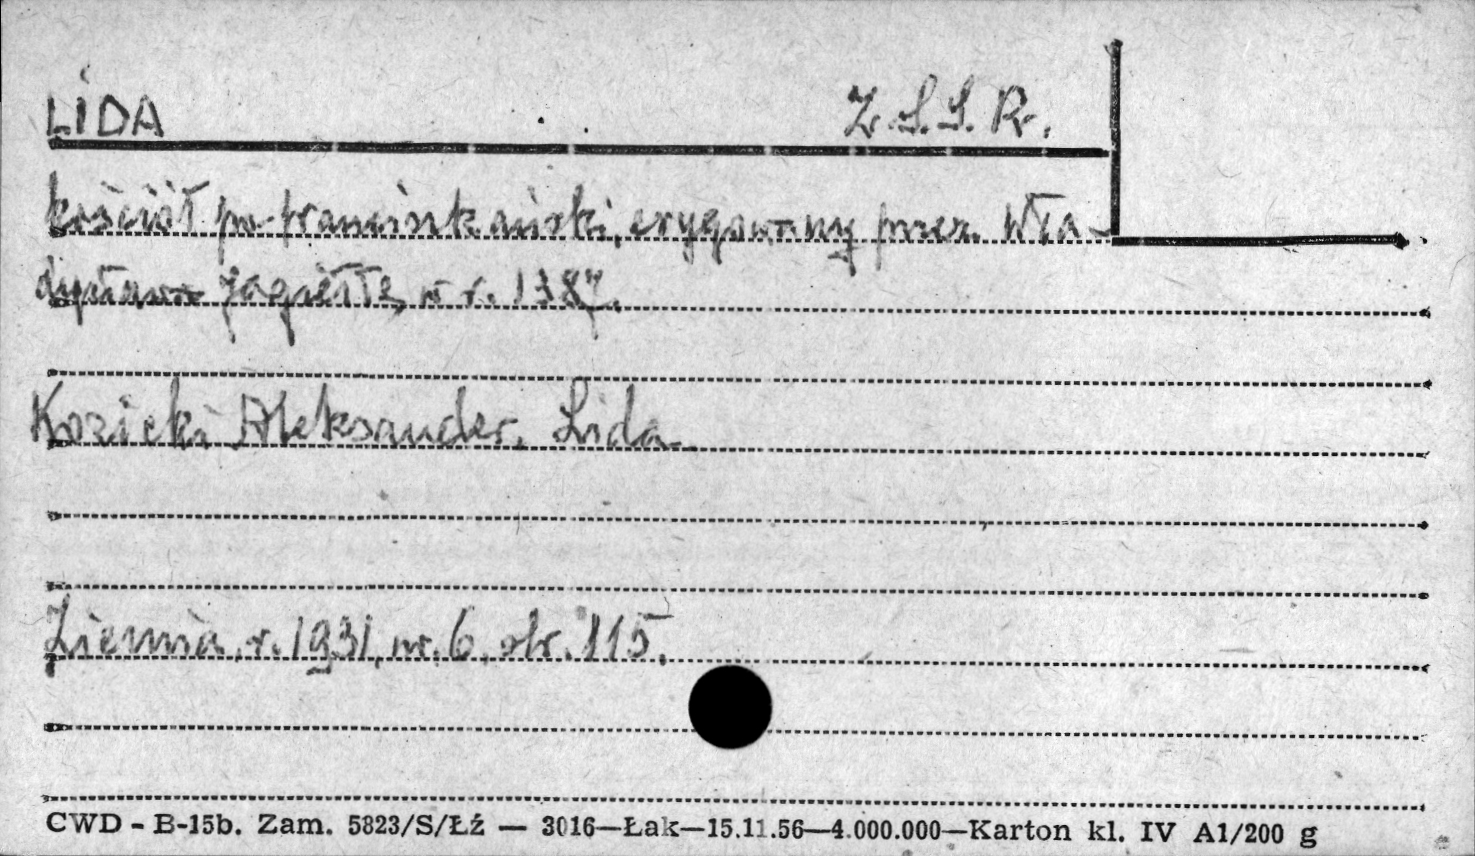 LIDA Z.S.S.R.
kościół po-franciszkański, erygowany przez Wła-
dysława Jagiełłę w r. 1387.
Kozicki Aleksander, Lida
Ziemia, r. 1931, nr. 6, str. 115.
CWD - B-15b. Zam. 5823/S/Łź — 3016—Łak—15.11.56—4.000.000—Karton kl. IV A1/200 g